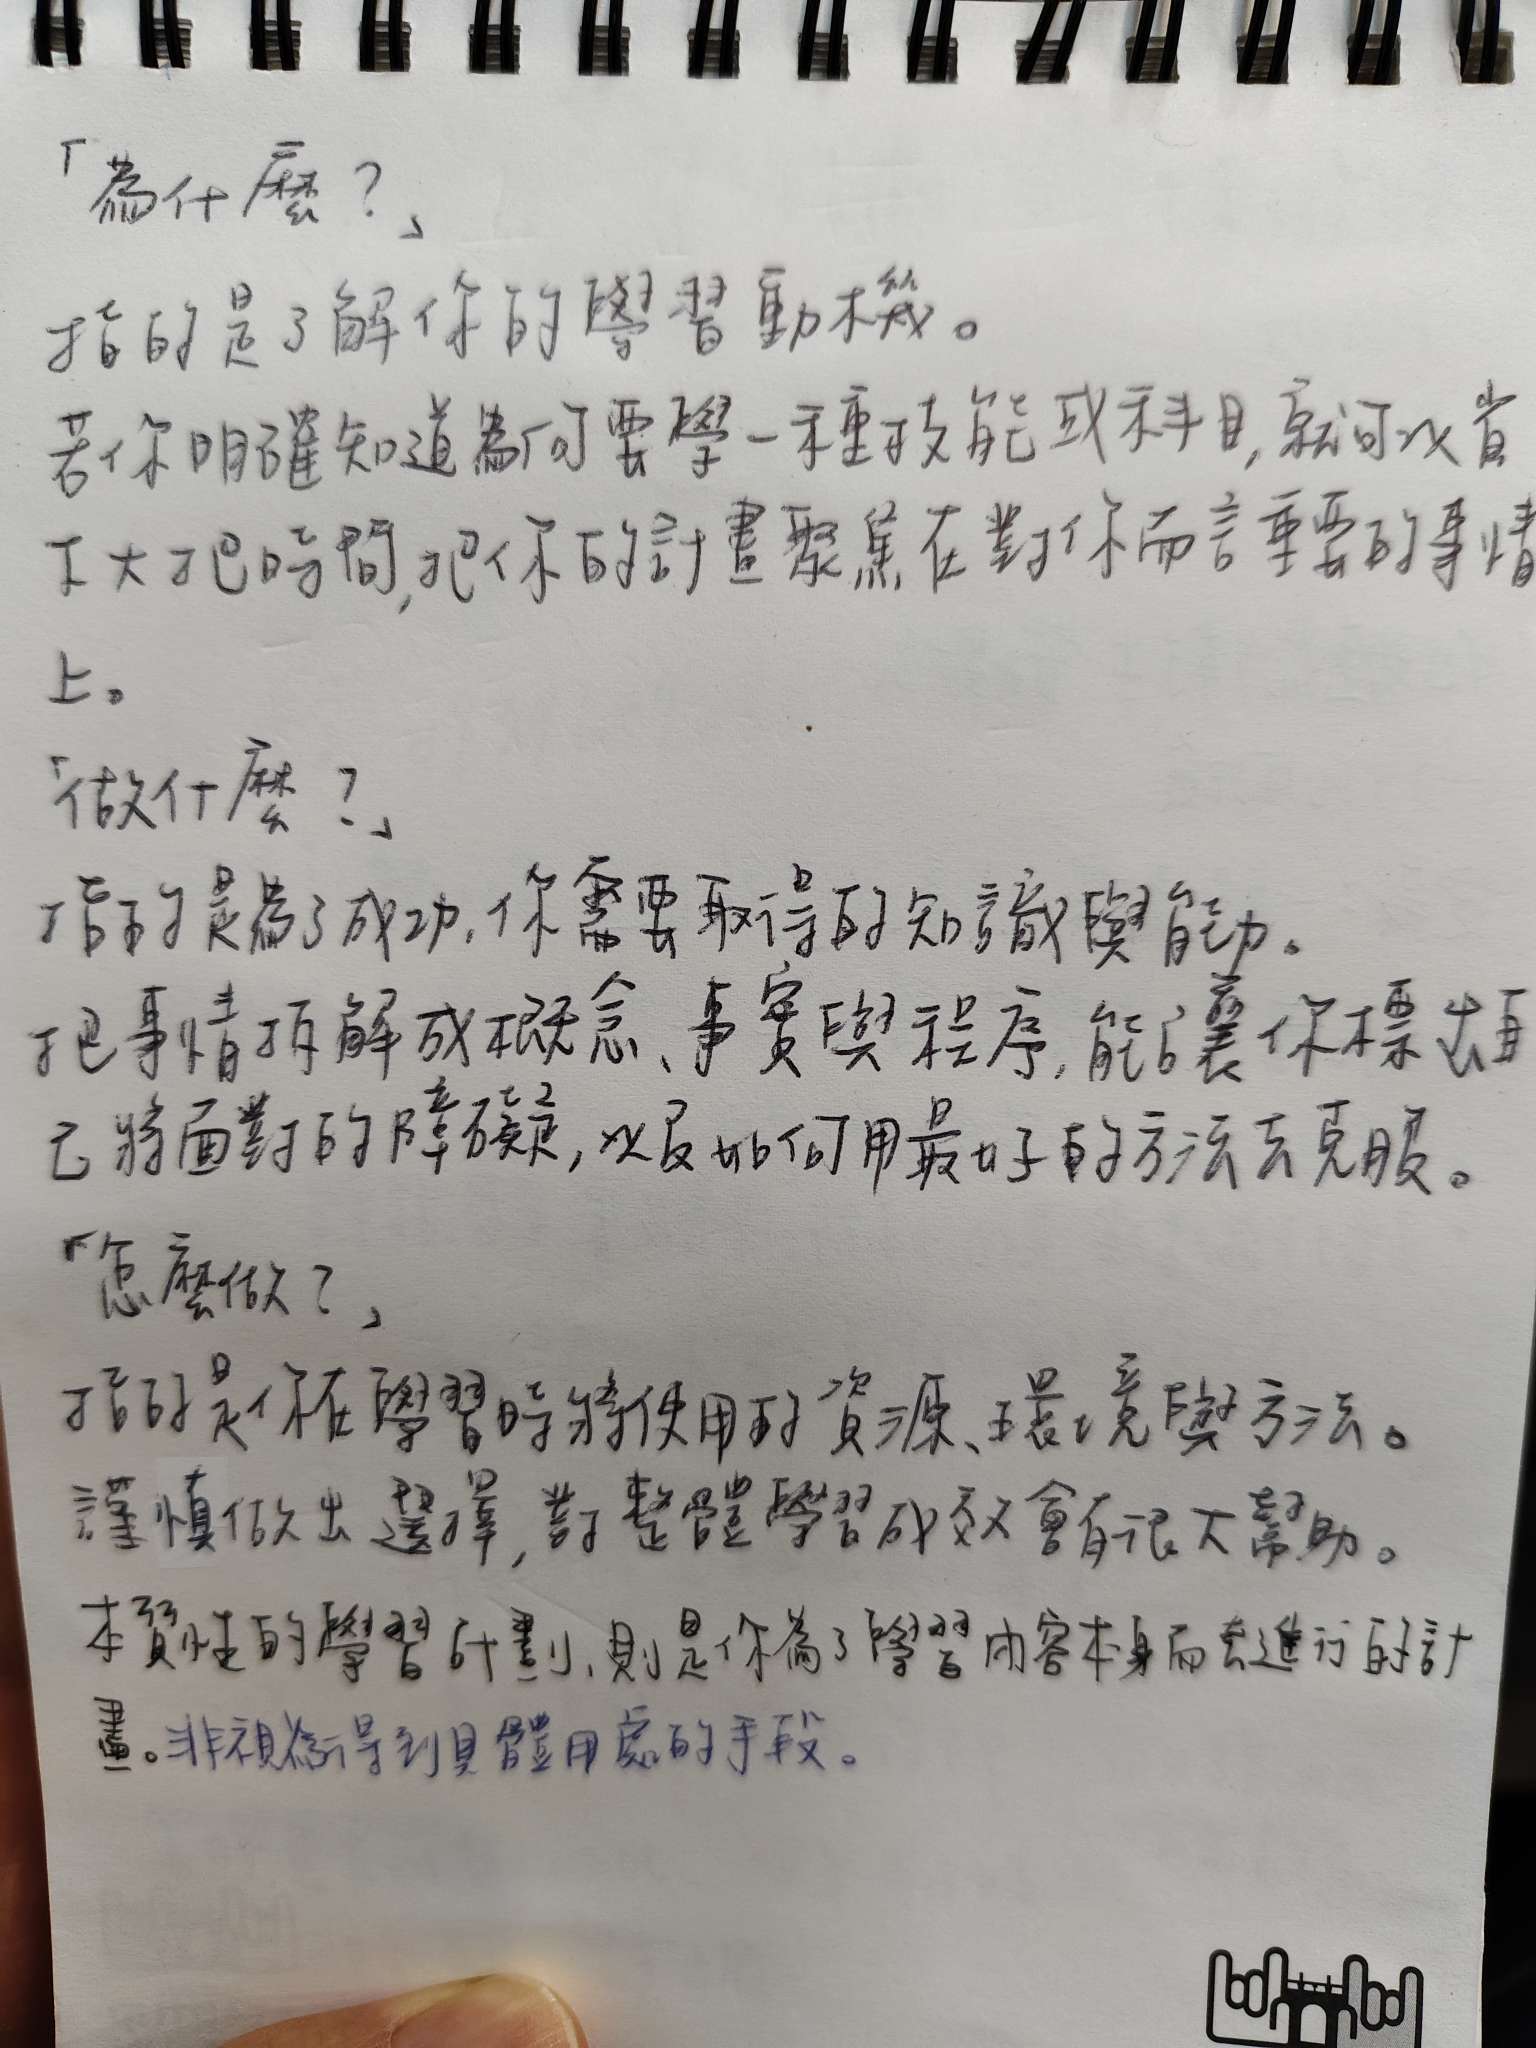 「為什麼?」
指的是了解你的學習動機。
若你明確知道為何要學一種技能或科目,就可以省
下大把時間,把你的計畫聚焦在對你而言重要的事情
上。
「做什麼?」
指的是為了成功,你需要取得的知識與能力。
把事情拆解成概念、事實與程序,能讓你標出自
己將面對的障礙,以及如何用最好的方法去克服。
「怎麼做?」
指的是你在學習時將使用的資源、環境與方法。
謹慎做出選擇,對整體學習成效會有很大幫助。
本質性的學習計劃,則是你為了學習內容本身而去進行的計
畫。非視為得到具體用處的手段。